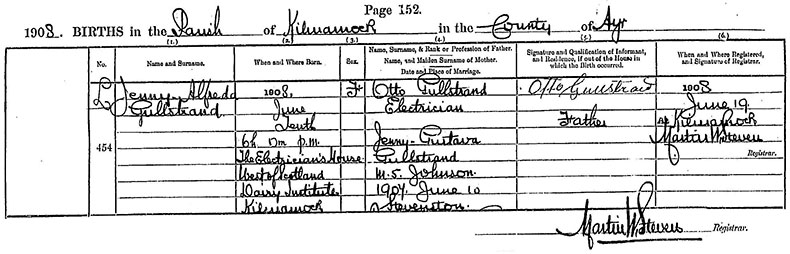 Page 152.
1908. BIRTHS in the Parish of Kilmarnock in the County of Ayr
(1.) (2.) (3.) (4.) (5.) (6.)
No.
Name and Surname.
When and Where Born.
Sex.
Name, Surname, & Rank or Profession of Father.
Name, and Maiden Surname of Mother.
Date and Place of Marriage.
Signature and Qualification of Informant,
and Residence, if out of the House in
which the Birth occurred.
When and Where Registered,
and Signature of Registrar.
454
Jenny Alfreda
Gullstrand
1908,
June
Tenth
6h. 0m. p.m.
The Electrician's House
West of Scotland
Dairy Institute
Kilmarnock
F
Otto Gullstrand
Electrician
Jenny Gustava
Gullstrand
M.S. Johnson
1907 June 10
Stevenston
Otto Gullstrand
Father
1908
June 19
At Kilmarnock
Martin W Steven
Registrar.
Martin W Steven Registrar.